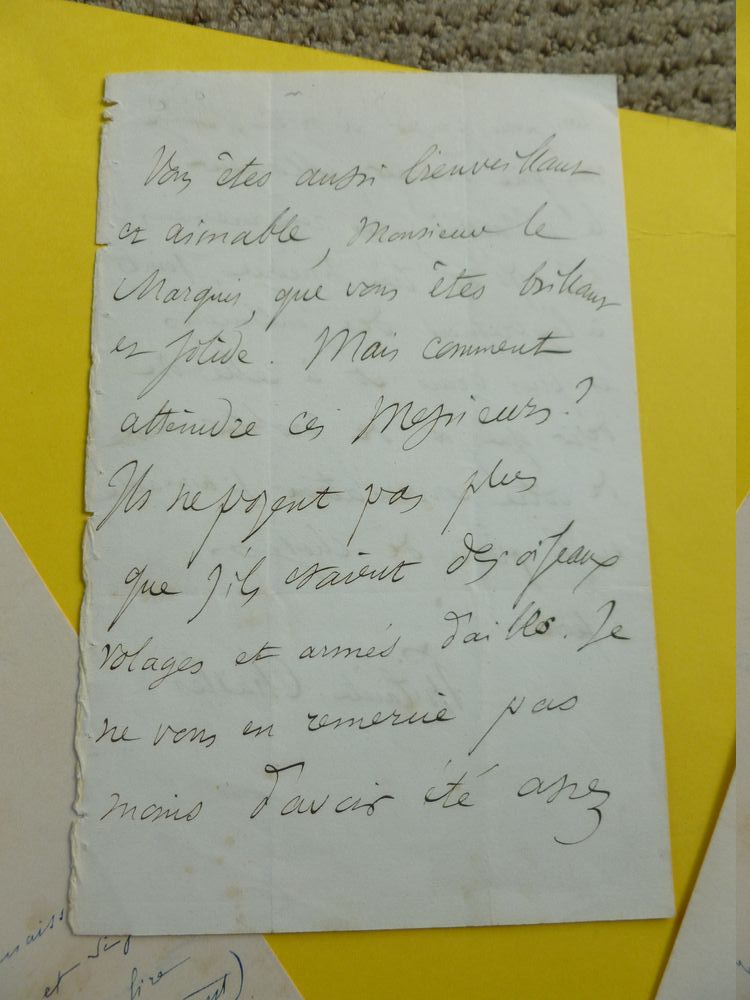 Vous êtes aussi bienveillant
et aimable, Monsieur le
Marquis, que vous êtes brillant
et solide. Mais comment
atteindre ces Messieurs?
Ils ne posent pas plus
que s'ils étaient des oiseaux
volages et armés d'ailes. Je
ne vous en remercie pas
moins d'avoir été assez
et
lire